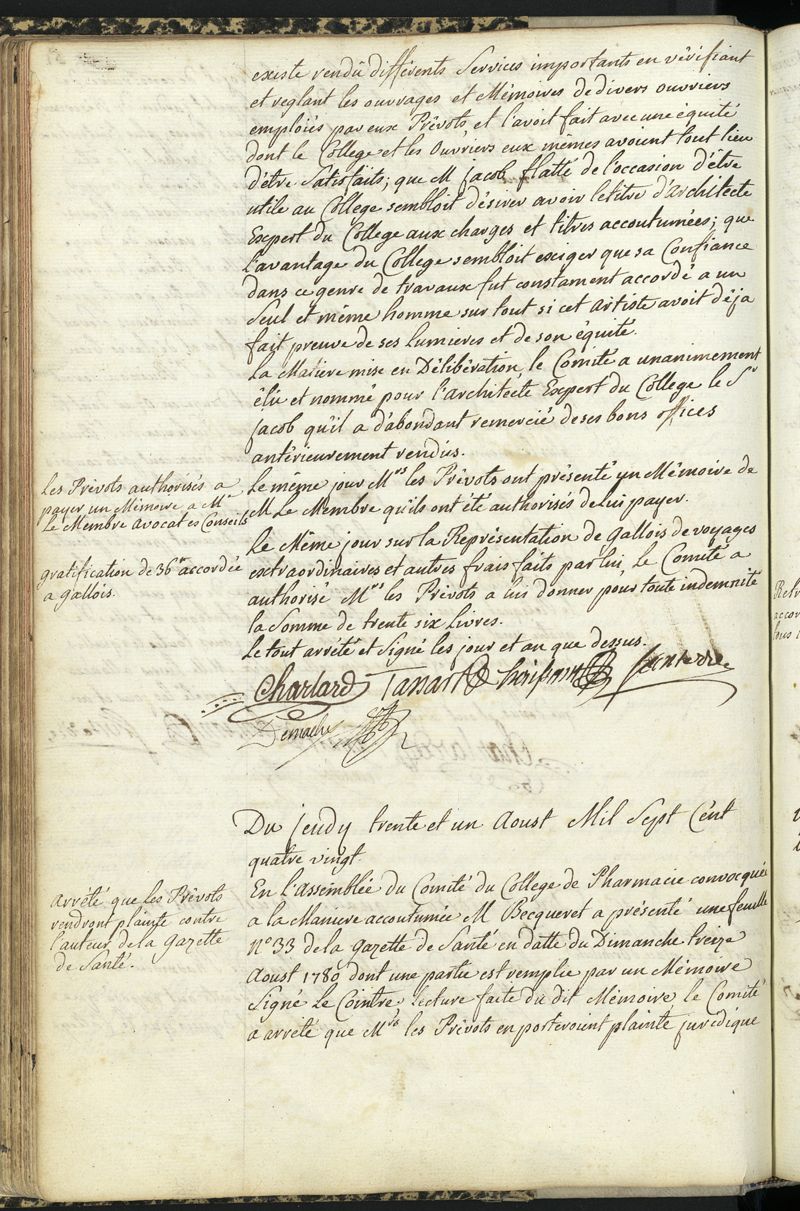 existe rendû différents Services importants en vérifiant
et reglant les ouvrages et Mémoires de divers ouvriers
emploiés par eux Prévots, et l'avoit fait avec une équité
dont le College et les Ouvriers eux mêmes avoient tout lieu
d'être Satisfaits; que M jacob flatté de l'occasion d'être
utile au College sembloit désirer avoir le titre d'architecte
Expert du College aux charges et titres accoutumées; que
l'avantage du College sembloit exciger que sa Confiance
dans ce genre de travaux fut constament accordé a un
Seul et même homme sur tout si cet artiste avoit déja
fait preuve de ses Lumieres et de son équité.
La Matiere mise en Délibération, le Comité a unanimement
élû et nommé pour l'architecte Expert du College le Sr
jacob qu'il a d'abondant remercié de ses bons offices
antérieurement rendus.
Les Prévots authorisés a
payer un Mémoire a Mr
Le Membre avocat es Conseils
Le même jour Mrs les Prévots ont présenté un Mémoire de
M Le Membre qu'ils ont été authorisés de lui payer.
gratification de 36tt accordée
a gallois.
Le Même jour sur la Représentation de gallois de voyages
extraordinaires et autres frais faits par lui, le Comité a
authorisé Mrs les Prévots a lui donner pour toute indemnité
la Somme de trente six Livres.
Le tout arrêté et Signé les jour et an que dessus.
Charlard Tassart
Demachy
Du jeudy trente et un Aoust Mil Sept Cent
quatre vingt.
arrêté que les Prévots
rendront plainte contre
l'auteur de la gazette
de Santé.
En l'assemblée du Comité du College de Pharmacie convocquée
a la Maniere accoutumée M Becqueret a présenté une feuille
N° 33 de la gazette de Santé en datte du Dimanche treize
Aoust 1780 dont une partie est remplie par un Mémoire
Signé Le Cointre. lecture faite du dit Mémoire le Comité
a arrêté que Mrs les Prévots en porteroient plainte juridique